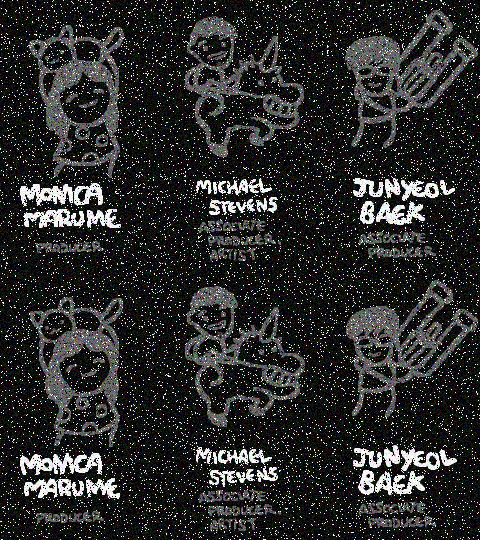 MOMCA
MARUME
PRODUCER
MICHAEL
STEVENS
ASSOCIATE
PRODUCER,
ARTIST
JUNYEOL
BAEK
ASSOCIATE
PRODUCER
MOMCA
MARUME
PRODUCER
MICHAEL
STEVENS
ASSOCIATE
PRODUCER,
ARTIST
JUNYEOL
BAEK
ASSOCIATE
PRODUCER